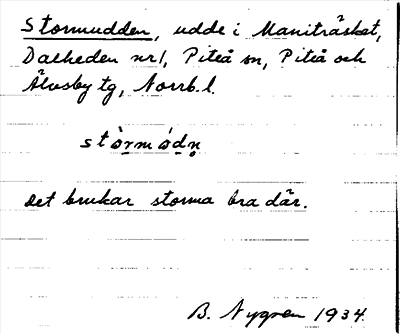 Stormudden, udde i Maniträsket,
Dalheden nr 1, Piteå sn, Piteå och
Älvsby tg, Norrb. l.
stòrmódn̥
Det brukar storma bra där.
B. Nygren 1934.